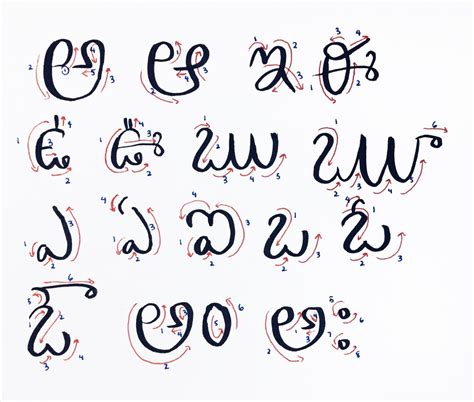 అ ఆ ఇ ఈ
ఉ ఊ ఋ ౠ
ఎ ఏ ఐ ఒ ఓ
ఔ అం అః